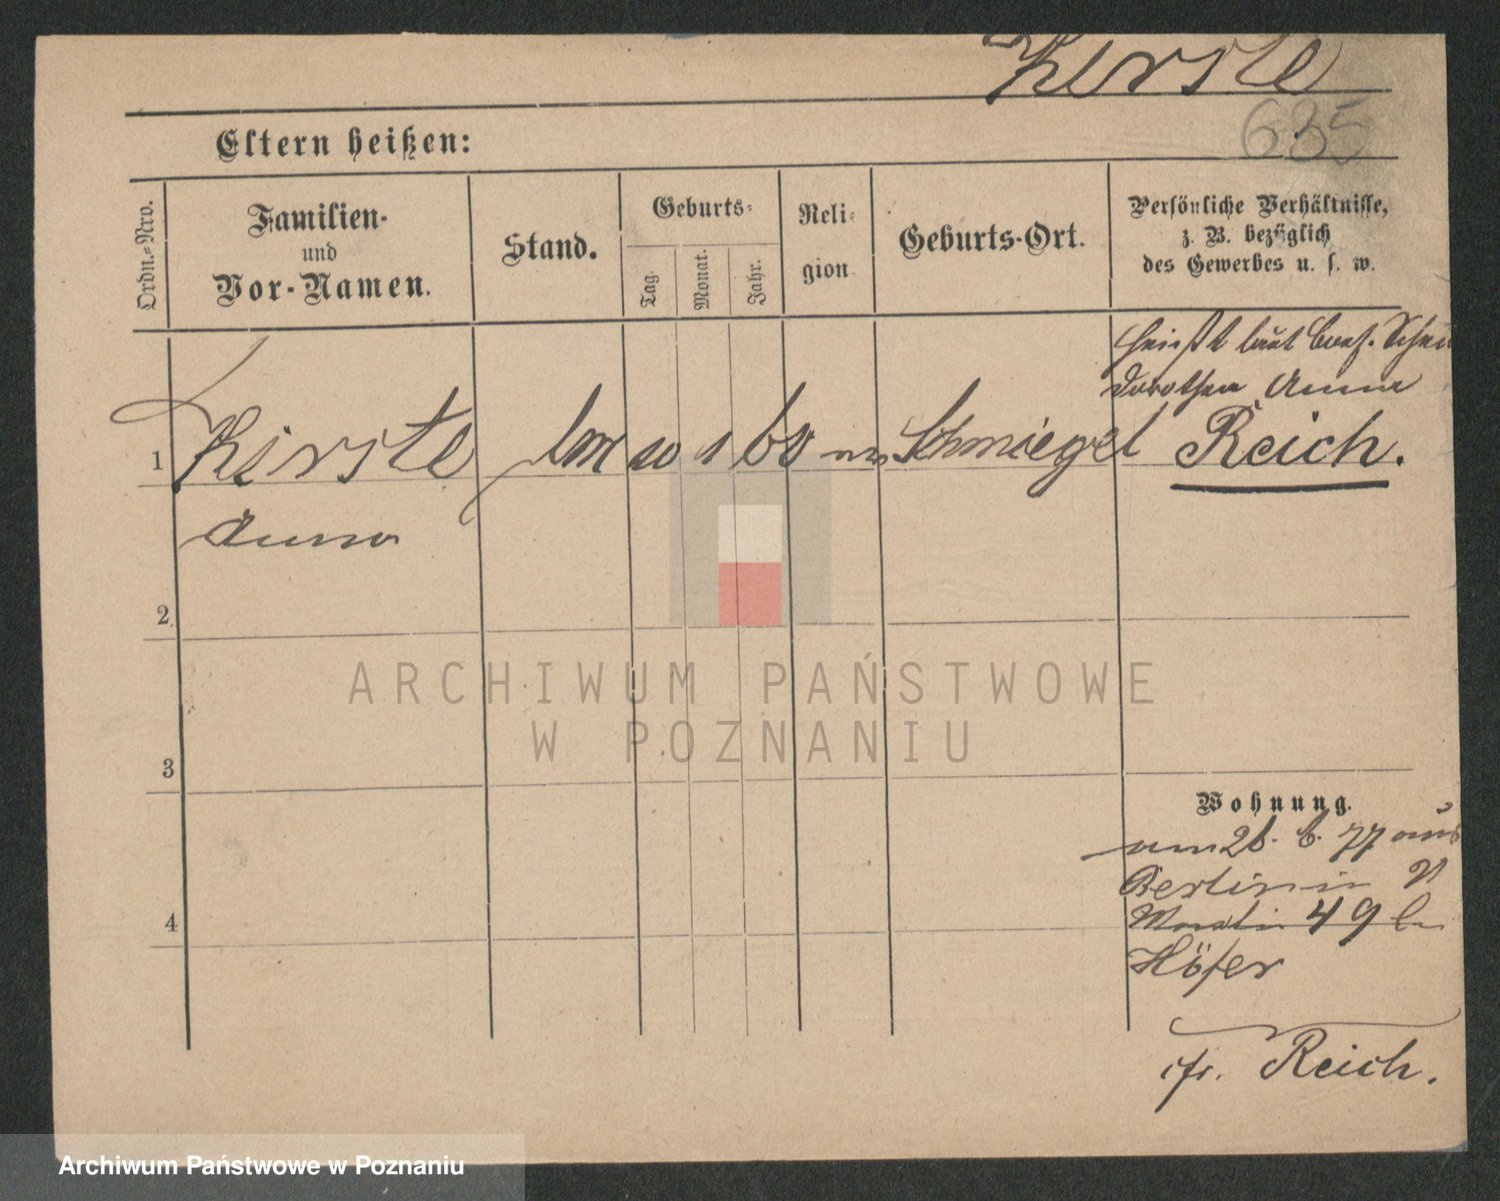 Kirste
635
Eltern heißen:
Ordn.-Nro.
Familien-
und
Vor-Namen.
Stand.
Geburts-
Tag.
Monat.
Jahr.
Reli-
gion
Geburts-Ort.
Persönliche Verhältnisse,
z. B. bezüglich
des Gewerbes u. s. w.
heißt laut
Dorothea Anna
1 Kirste 1 60 Schmiegel Reich.
Anna
2
3
4
Wohnung.
am 26. 6. 77 aus
Berlin in
Martin 49
Höfer
cfr. Reich.
ARCHIWUM PAŃSTWOWE
W POZNANIU
Archiwum Państwowe w Poznaniu